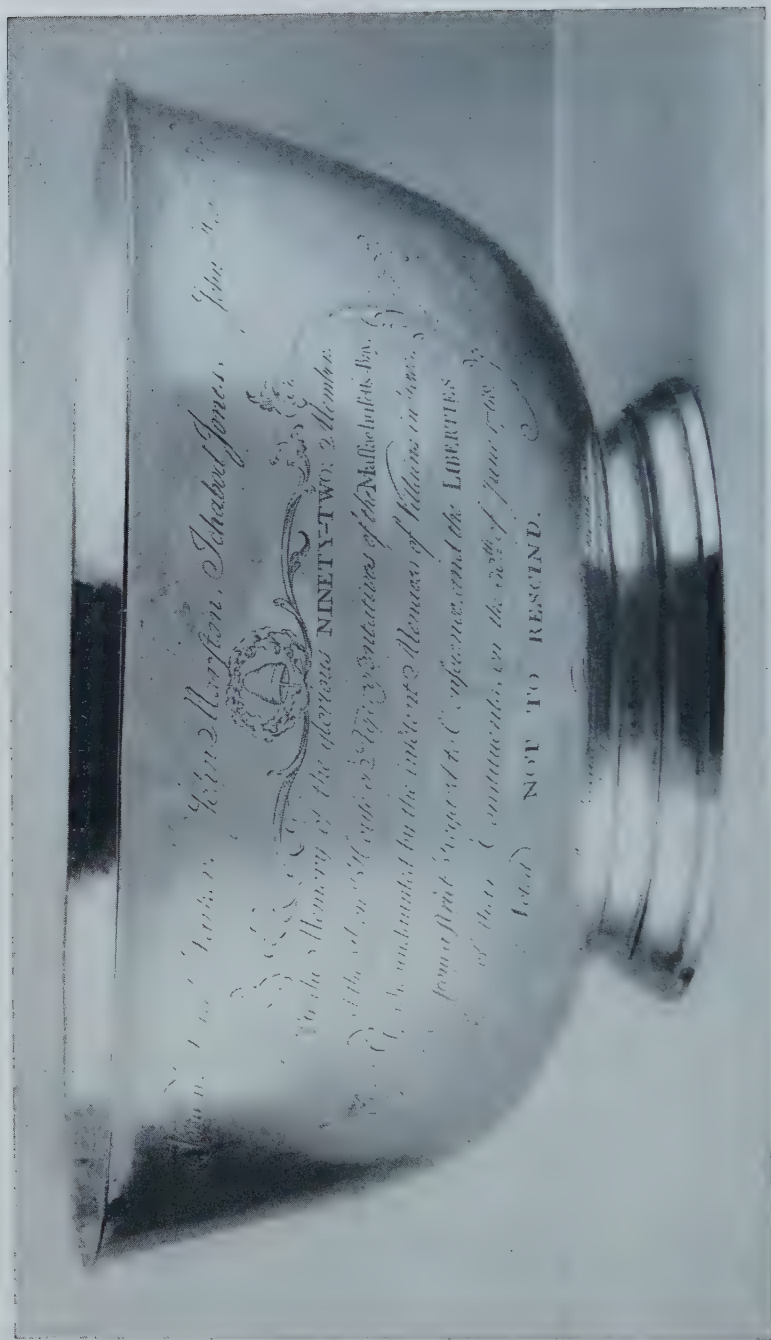 John Marston. Ichabod Jones. John
To the Memory of the glorious NINETY-TWO: Members
of the Honbl House of Representatives of the Massachusetts-Bay,
who, undaunted by the insolent Menaces of Villains in Power,
from a Strict Regard to Conscience, and the LIBERTIES
of their Constituents, on the 30th of June 1768
Voted NOT TO RESCIND.